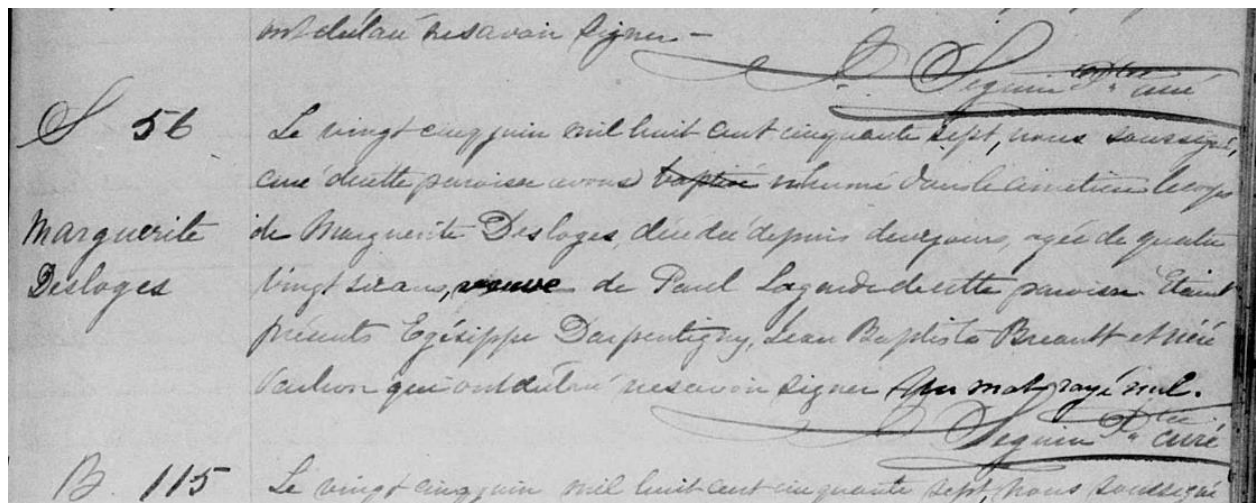 ont déclaré ne savoir signer —
Seguin Ptre curé
S 56
Le vingt cinq juin mil huit cent cinquante sept, nous soussigné,
curé de cette paroisse avons baptisé inhumé dans le cimetière le corps
Marguerite
de Marguerite Desloges, décédée depuis deux jours, agée de quatre
Desloges
vingt six ans, veuve de Paul Lagarde de cette paroisse. Etaient
présents Egésippe Darpentigny, Jean Baptiste Breault et
Vachon qui ont déclaré ne savoir signer. Un mot rayé nul.
Seguin Ptre curé
B. 115
Le vingt cinq juin mil huit cent cinquante sept, nous soussigné